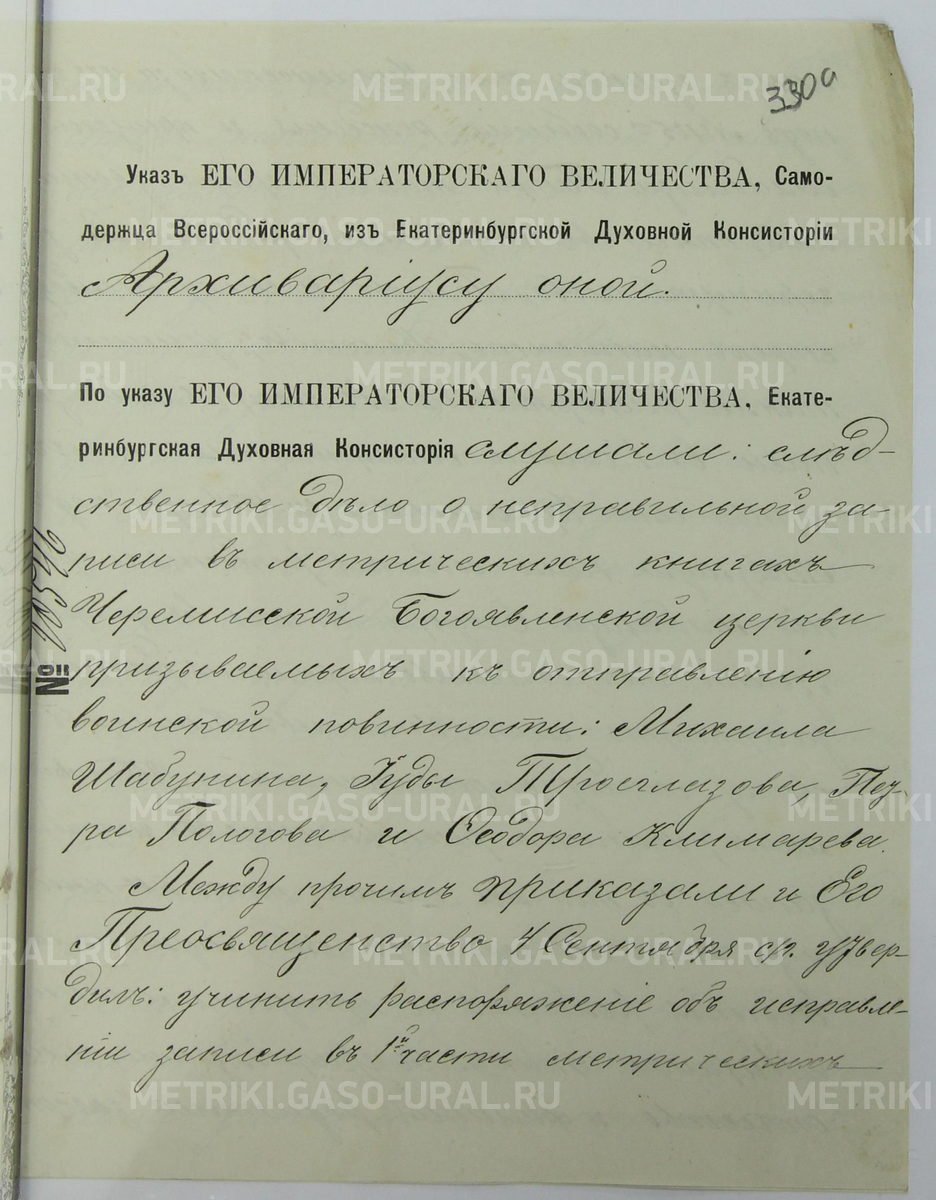 330а
Указъ ЕГО ИМПЕРАТОРСКАГО ВЕЛИЧЕСТВА, Само-
держца Всероссійскаго, изъ Екатеринбургской Духовной Консисторіи
Архиваріусу оной.
По указу ЕГО ИМПЕРАТОРСКАГО ВЕЛИЧЕСТВА, Екате-
ринбургская Духовная Консисторія слушали: слѣд-
ственное дѣло о неправильной за
писи въ метрическихъ книгахъ
Черемисской Богоявленской церкви
призываемыхъ къ отправленію
воинской повинности: Михаила
Шабунина, Іуды Троеглазова, Пет-
ра Пологова и Ѳеодора Климарева.
Между прочимъ приказали и Его
Преосвященство 4 Сентября с/г. утвер-
дилъ: учинить распоряженіе объ исправле-
ніи записи въ 1й части метрическихъ
№
METRIKI.GASO-URAL.RU